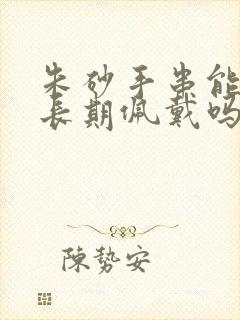 朱砂手串能
長期佩戴吗
陳勢安